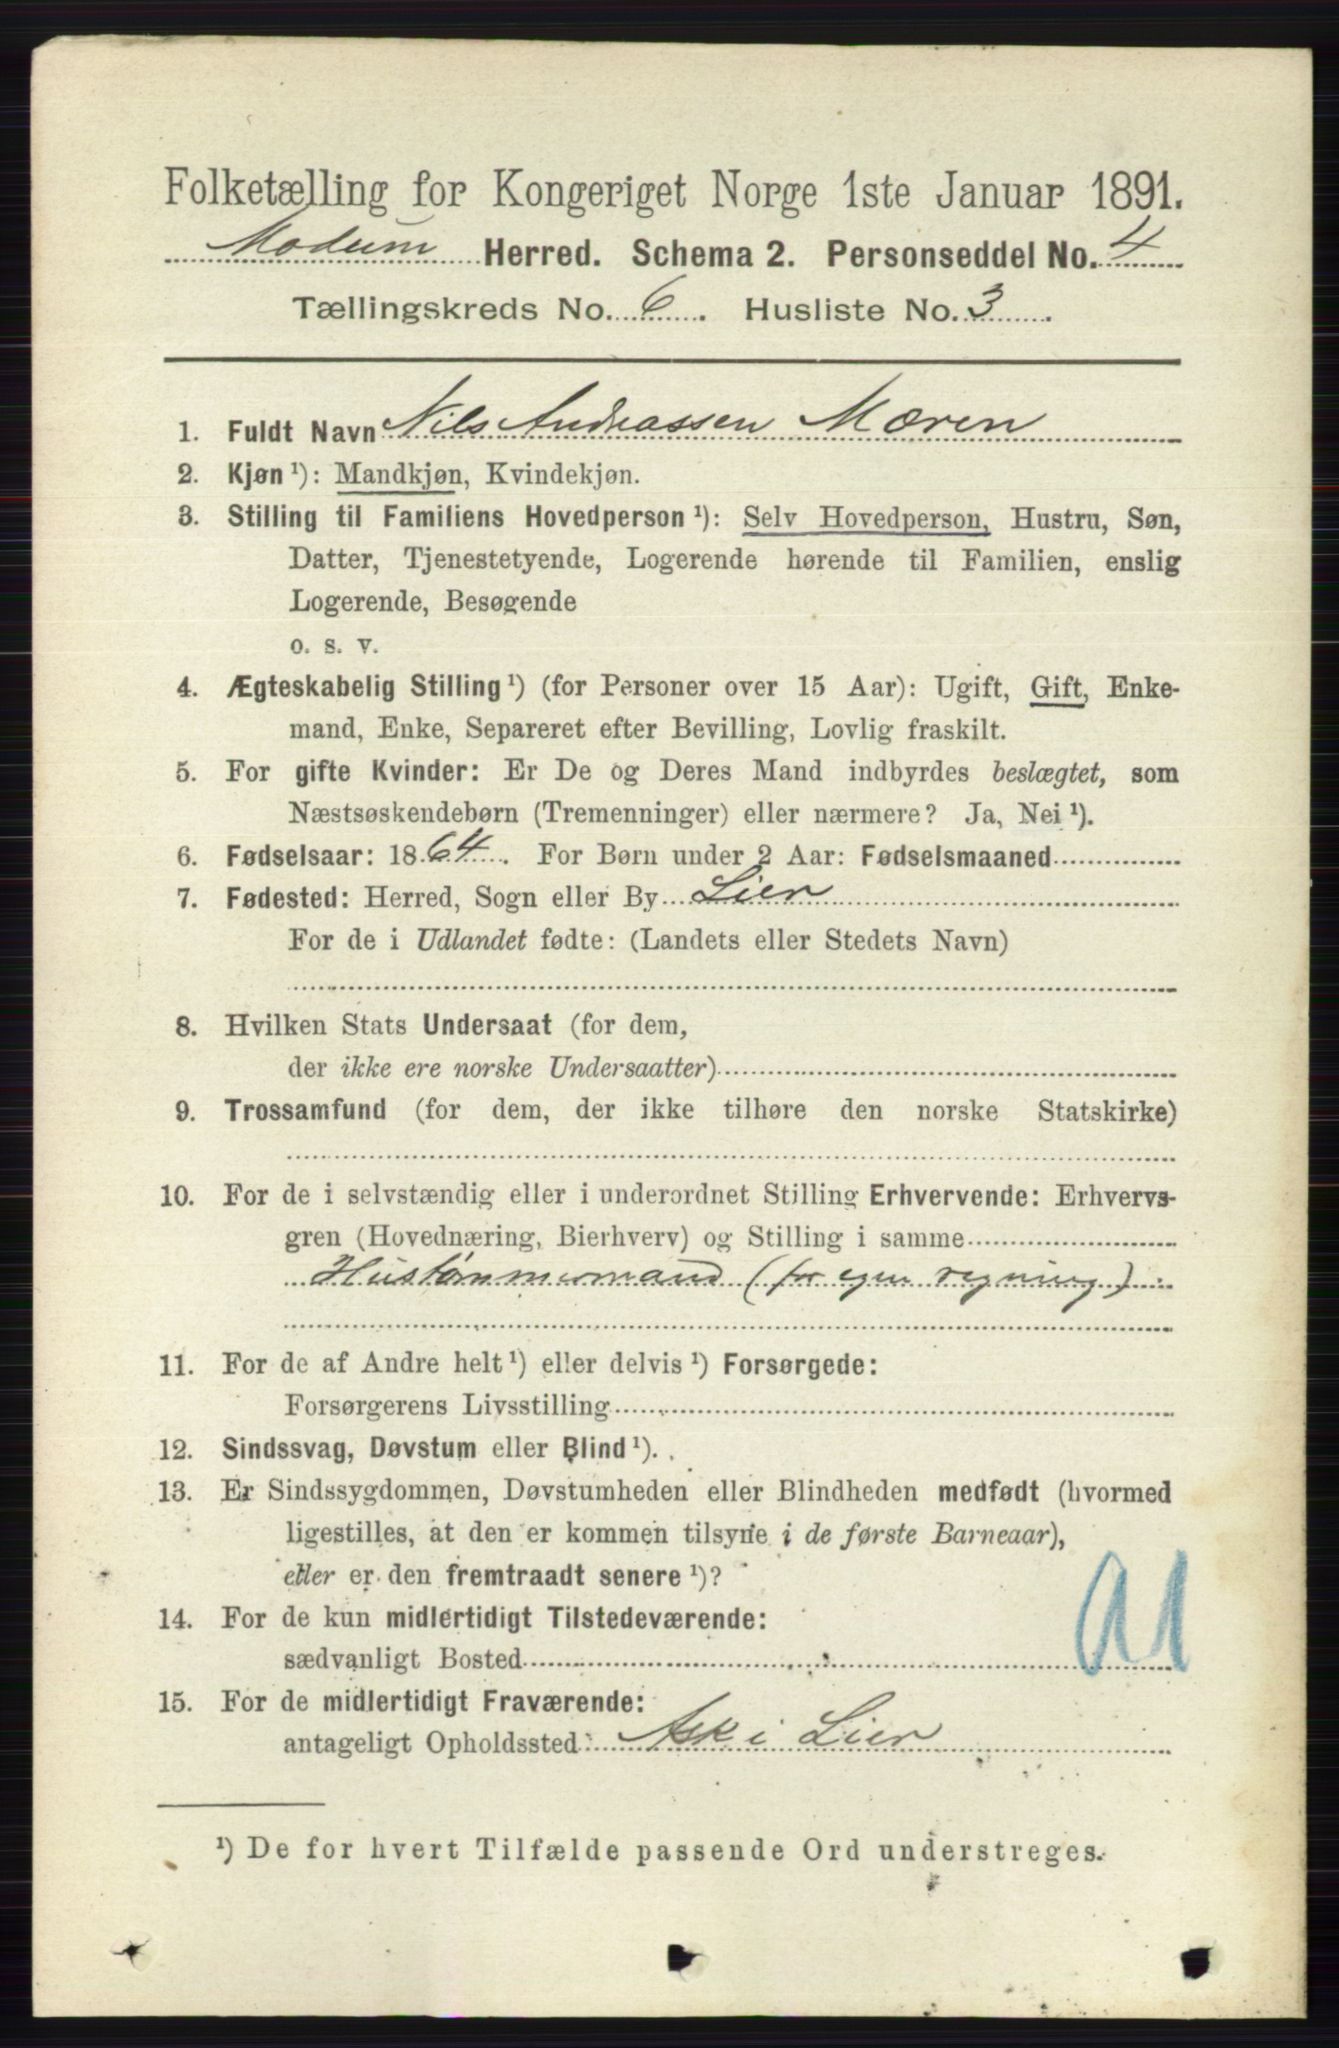 Folketælling for Kongeriget Norge 1ste Januar 1891.
Modum Herred. Schema 2. Personseddel No. 4
Tællingskreds No. 6. Husliste No. 3.
1. Fuldt Navn Nils Andreassen Mæren
2. Kjøn ¹): Mandkjøn, Kvindekjøn.
3. Stilling til Familiens Hovedperson ¹): Selv Hovedperson, Hustru, Søn,
Datter, Tjenestetyende, Logerende hørende til Familien, enslig
Logerende, Besøgende
o. s. v.
4. Ægteskabelig Stilling ¹) (for Personer over 15 Aar): Ugift, Gift, Enke-
mand, Enke, Separeret efter Bevilling, Lovlig fraskilt.
5. For gifte Kvinder: Er De og Deres Mand indbyrdes beslægtet, som
Næstsøskendebørn (Tremenninger) eller nærmere? Ja, Nei ¹).
6. Fødselsaar: 1864. For Børn under 2 Aar: Fødselsmaaned
7. Fødested: Herred, Sogn eller By Lier
For de i Udlandet fødte: (Landets eller Stedets Navn)
8. Hvilken Stats Undersaat (for dem,
der ikke ere norske Undersaatter)
9. Trossamfund (for dem, der ikke tilhøre den norske Statskirke)
10. For de i selvstændig eller i underordnet Stilling Erhvervende: Erhvervs-
gren (Hovednæring, Bierhverv) og Stilling i samme
Hustømmermand (for egen regning).
11. For de af Andre helt ¹) eller delvis ¹) Forsørgede:
Forsørgerens Livsstilling
12. Sindssvag, Døvstum eller Blind ¹).
13. Er Sindssygdommen, Døvstumheden eller Blindheden medfødt (hvormed
ligestilles, at den er kommen tilsyne i de første Barneaar),
eller er den fremtraadt senere ¹)?
14. For de kun midlertidigt Tilstedeværende:
sædvanligt Bosted
15. For de midlertidigt Fraværende:
antageligt Opholdssted Ask i Lier
¹) De for hvert Tilfælde passende Ord understreges.